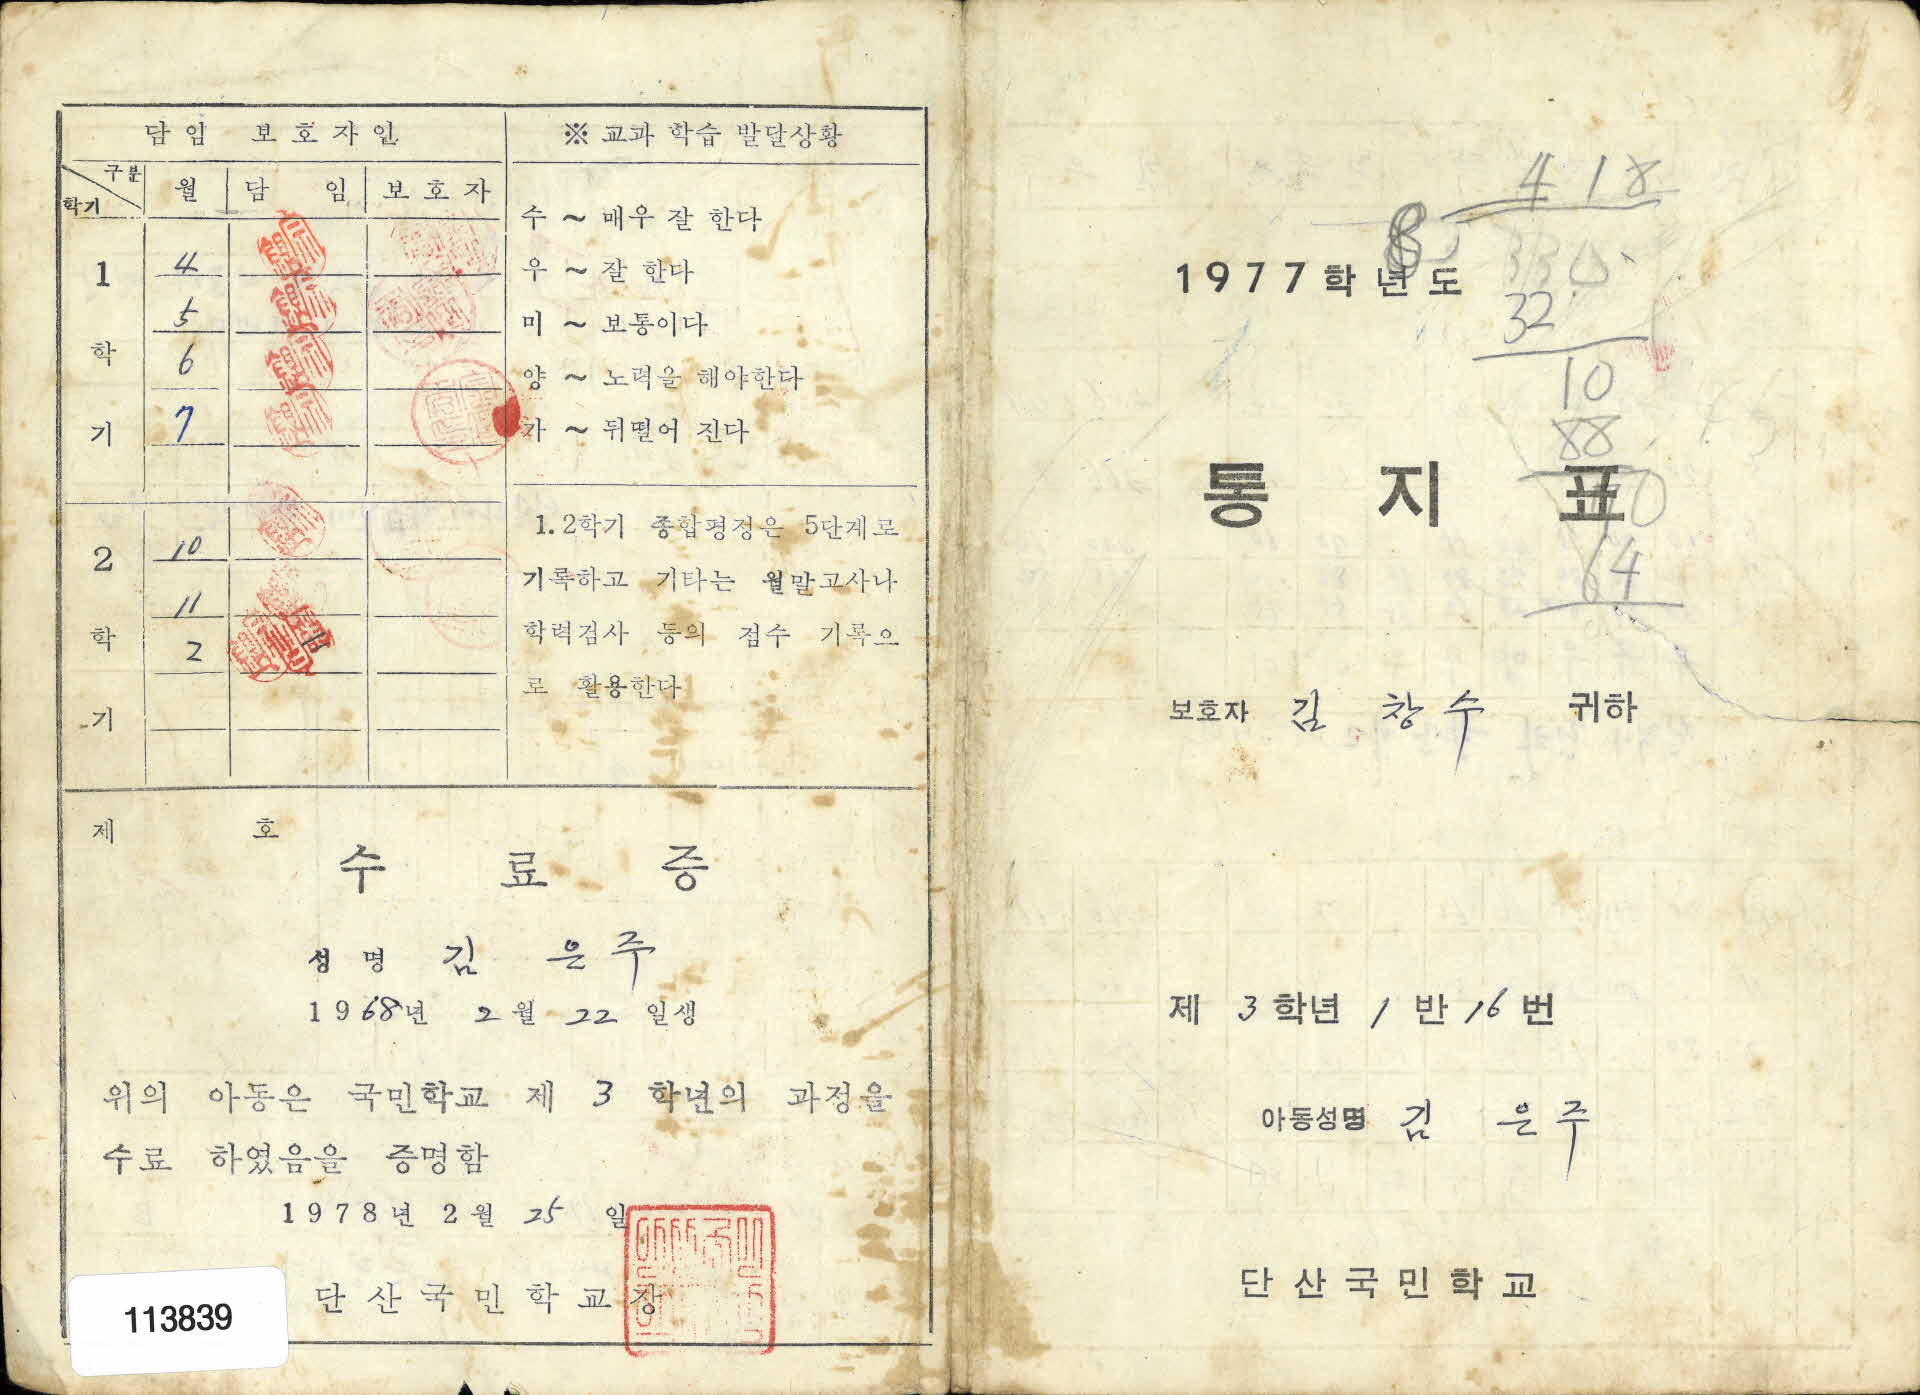 담임 보호자인
구분
학기
월
담 임
보호자
1학기
4
5
6
7
2학기
10
11
2
※ 교과 학습 발달상황
수 ~ 매우 잘 한다
우 ~ 잘 한다
미 ~ 보통이다
양 ~ 노력을 해야한다
가 ~ 뒤떨어 진다
1.2학기 종합평정은 5단계로
기록하고 기타는 월말고사나
학력검사 등의 점수 기록으
로 활용한다
제 호
수 료 증
성명 김 은주
1968년 2월 22일생
위의 아동은 국민학교 제 3 학년의 과정을
수료 하였음을 증명함
1978년 2월 25일
단산국민학교장
113839
418
8
1977학년도
330
32
10
88
통 지 표
64
보호자 김 창수 귀하
제 3학년 1반 16번
아동성명 김 은주
단산국민학교